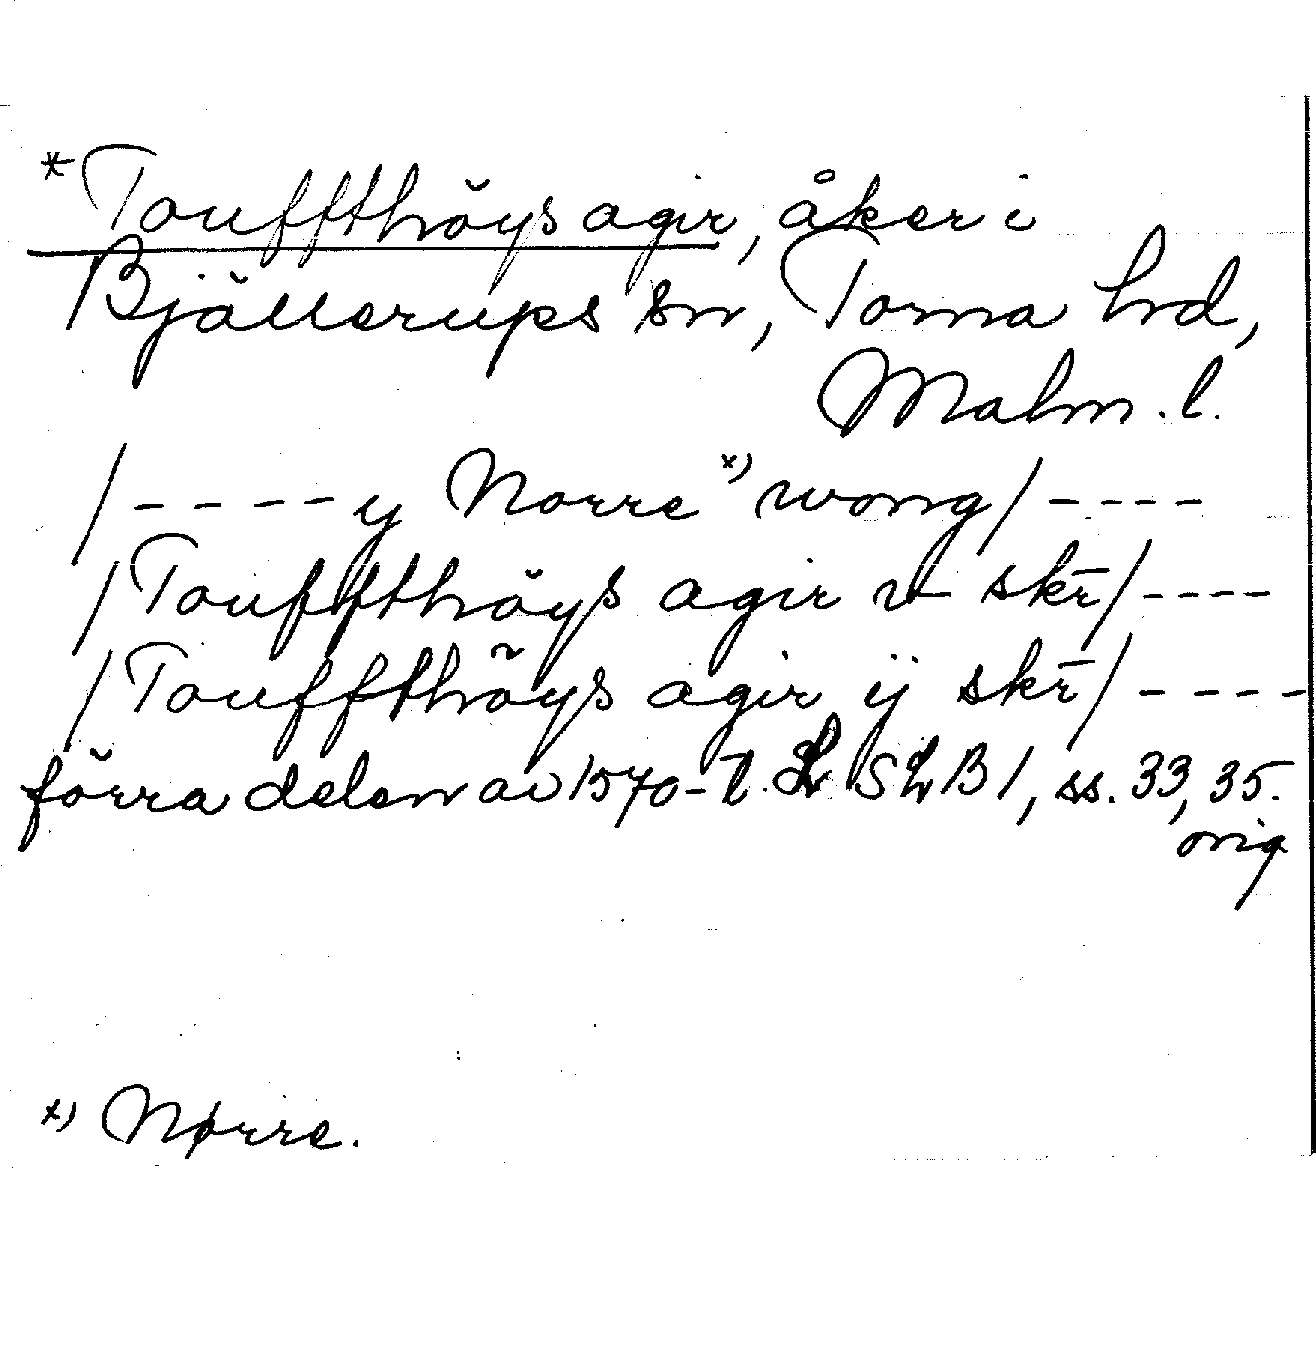 *Touffthöys agir, åker i
Bjällerups sn, Torna hd,
Malm. l.
/ - - - - y Norre x) wong/ - - - -
/Touffthöys agir v skr̄/ - - - -
/Touffthöys agir ij skr̄/ - - - -
förra delen av 1570-t. SLB 1, ss. 33, 35.
orig
x) Nørre.